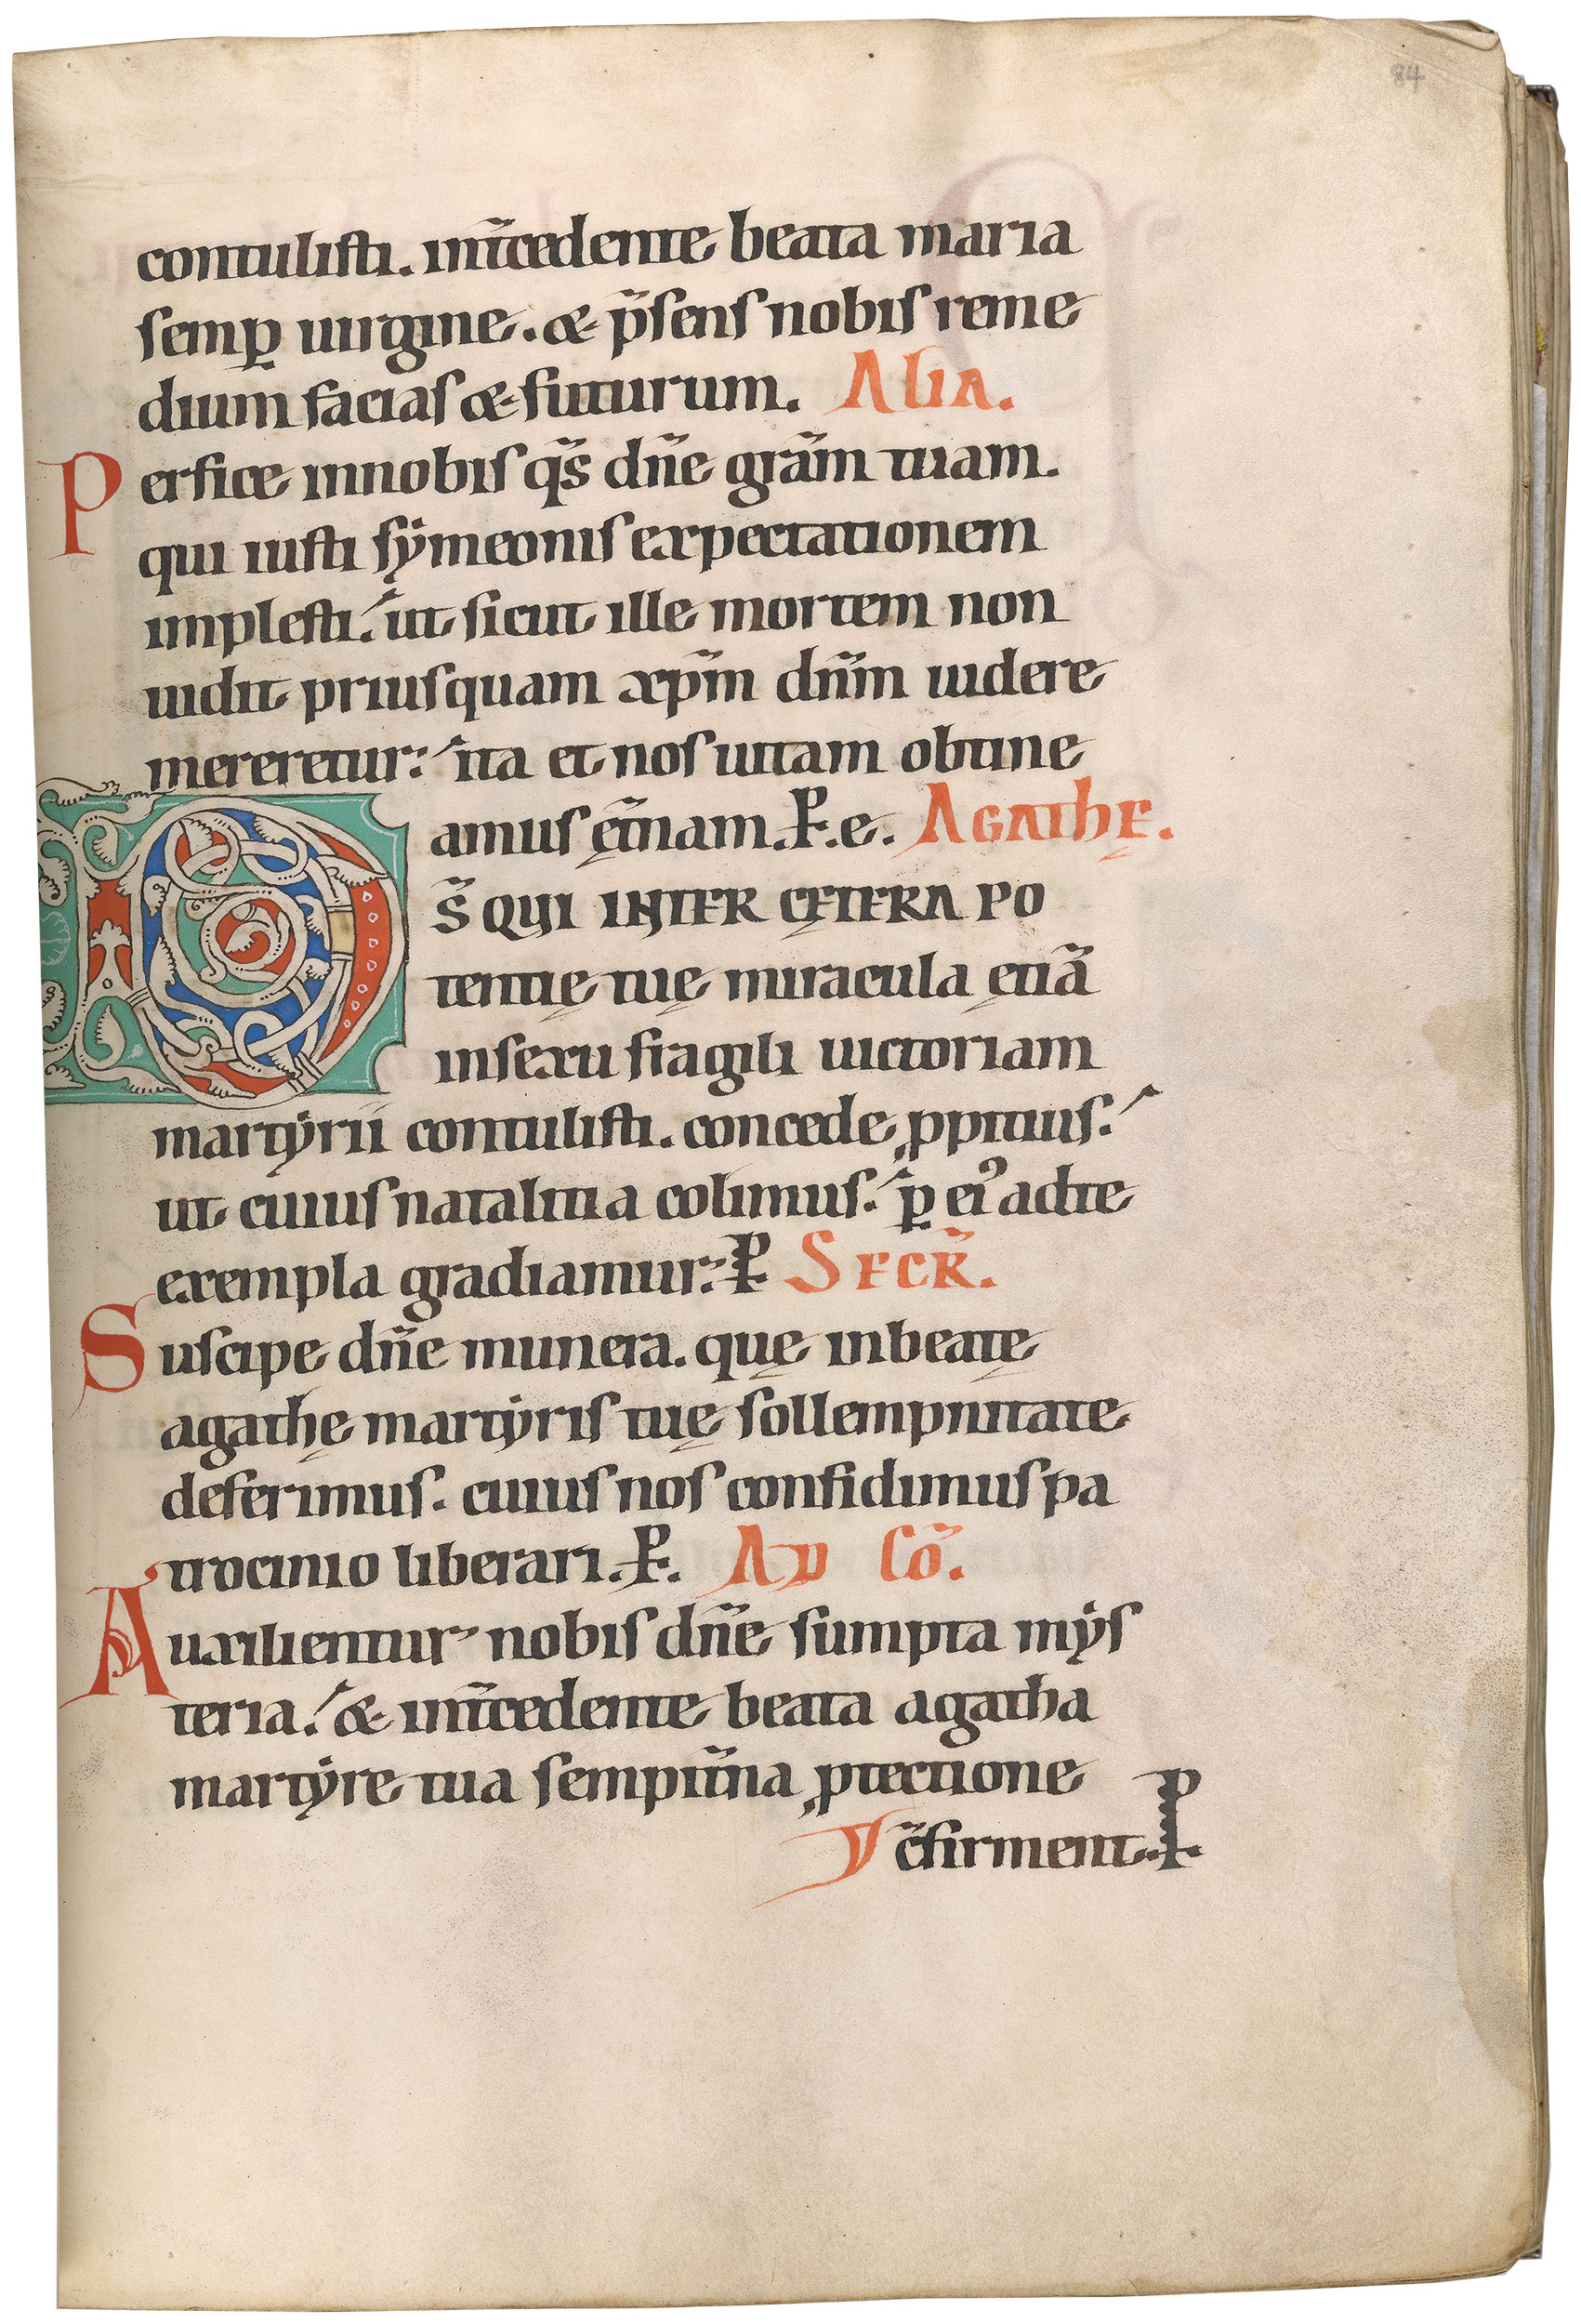 84
contulisti. int̄cedente beata maria
semꝑ uirgine. & p̄sens nobis reme
dium facias & futurum. Alia.
Perfice innobis q̄s dn̄e grām tuam.
qui iusti sẏmeonis expectationem
implesti. ut sicut ille mortem non
uidit priusquam xp̄m dn̄m uidere
mereretur: ita et nos uitam obtine
amus ęt̄nam. P. e. Agathę.
DS̄ QUI INTER CĘTERA PO
tentię tuę miracula ętiā
insexu fragili uictoriam
martẏrii contulisti. concede ꝓpitius.
ut cuius natalitia colimus. ꝑ eiꝰ adte
exempla gradiamur: P SECR̄.
Suscipe dn̄e munera. quę inbeatę
agathę martẏris tuę sollempnitate
deferimus. cuius nos confidimus pa
trocinio liberari. P. AD Cō.
Auxilientur nobis dn̄e sumpta mẏs
teria. & int̄cedente beata agatha
martẏre tua sempit̄na ꝓtectione
c̄firment. P